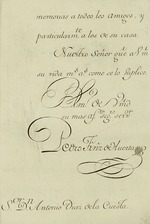 memorias a todos los amigos, y
particularm.te a los de su casa.
Nuestro Señor gue. a Vm.
su vida m.s a.s como se lo suplico
de Vmd
su mas af.to seg.ro ser.or
Pedro
S.or D.n Antonio Diaz de la Cuesta.